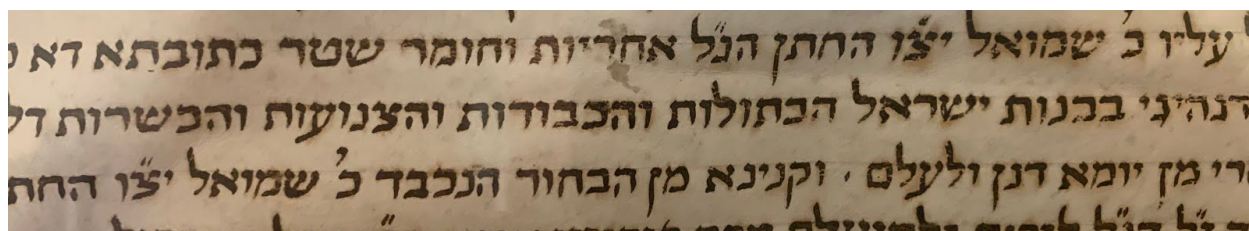 עליו כ' שמואל יצ״ו החתן הנ״ל אחריות וחומר שטר כתובתא דא
דנהיגי בבנות ישראל הבתולות והכבודות והצנועות והכשרות
מן יומא דנן ולעלם . וקנינא מן הבחור הנכבד כ' שמואל יצ״ו החת